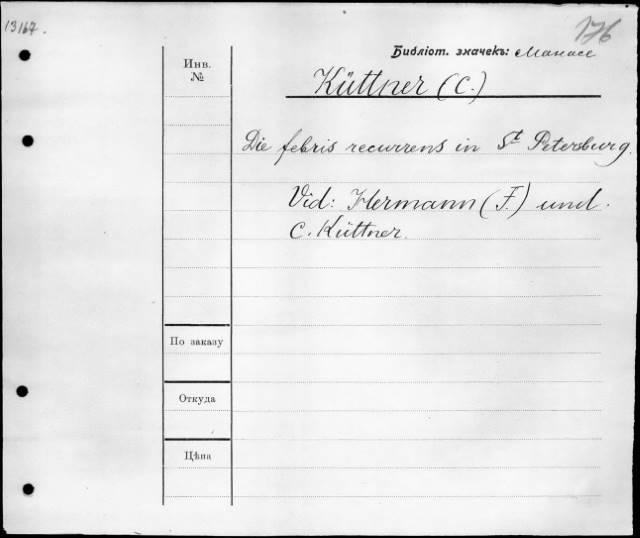 13167.
176
Библіот. значекъ: Манасс
Инв.
№
Küttner (C.)
Die febris recurrens in St Petersburg.
Vid: Hermann (F.) und
C. Küttner.
По заказу
Откуда
Цѣна